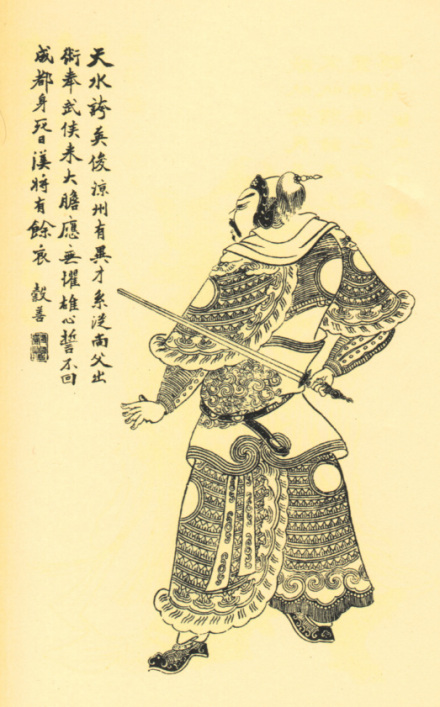 天水誇英俊涼州有異才系從尚父出
術奉武侯来大膽應無懼雄心誓不回
成都身死日漢將有餘哀 穀善